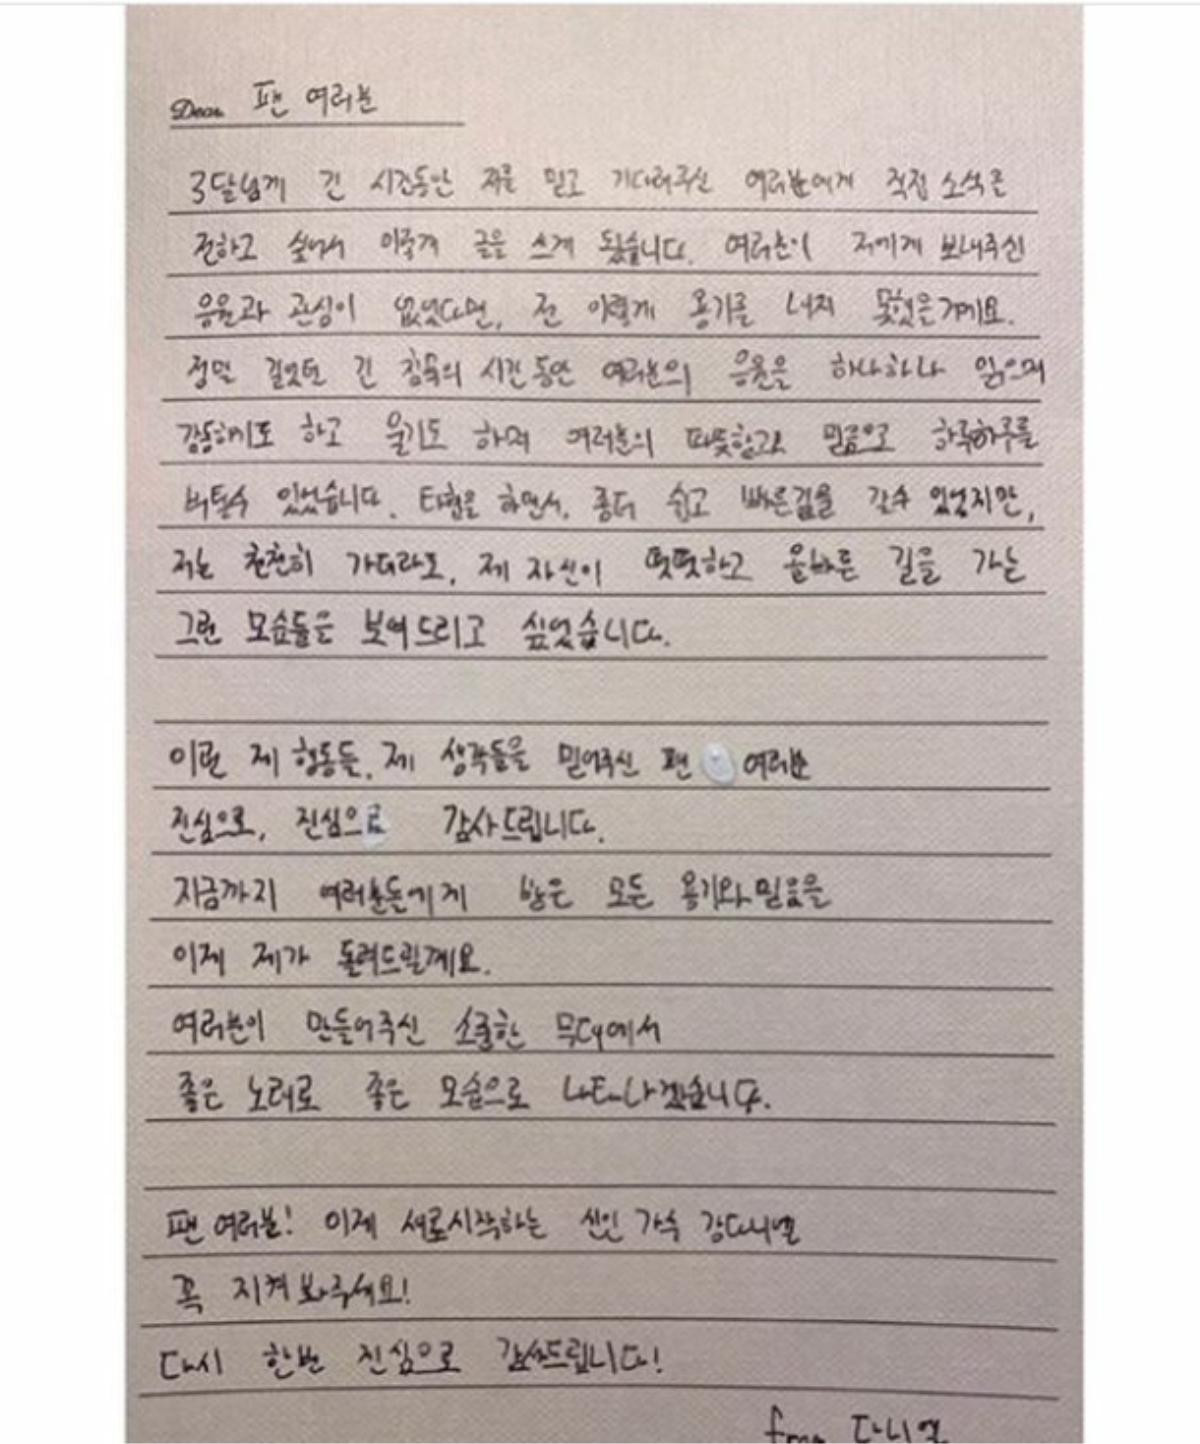 Dear. 팬 여러분
3달넘게 긴 시간동안 저를 믿고 기다려주신 여러분에게 직접 소식을
전하고 싶어서 이렇게 글을 쓰게 됐습니다. 여러분이 저에게 보내주신
응원과 관심이 없었다면, 전 이렇게 용기를 내지 못했을거에요.
정말 길었던 긴 침묵의 시간동안 여러분의 응원을 하나하나 읽으며
감동하기도 하고 울기도 하며 여러분의 따뜻함과 믿음으로 하루하루를
버틸수 있었습니다. 타협을 하면서, 좀더 쉽고 빠른길을 갈수 있었지만,
저는 천천히 가더라도, 제 자신이 떳떳하고 올바른 길을 가는
그런 모습들을 보여드리고 싶었습니다.
이런 제 행동들, 제 생각들을 믿어주신 팬 여러분
진심으로, 진심으로 감사드립니다.
지금까지 여러분들에게 받은 모든 용기와 믿음을
이제 제가 돌려드릴께요.
여러분이 만들어주신 소중한 무대에서
좋은 노래로 좋은 모습으로 나타나겠습니다.
팬 여러분! 이제 새로시작하는 신인 가수 강다니엘
꼭 지켜봐주세요!
다시 한번 진심으로 감사드립니다!
from 다니엘